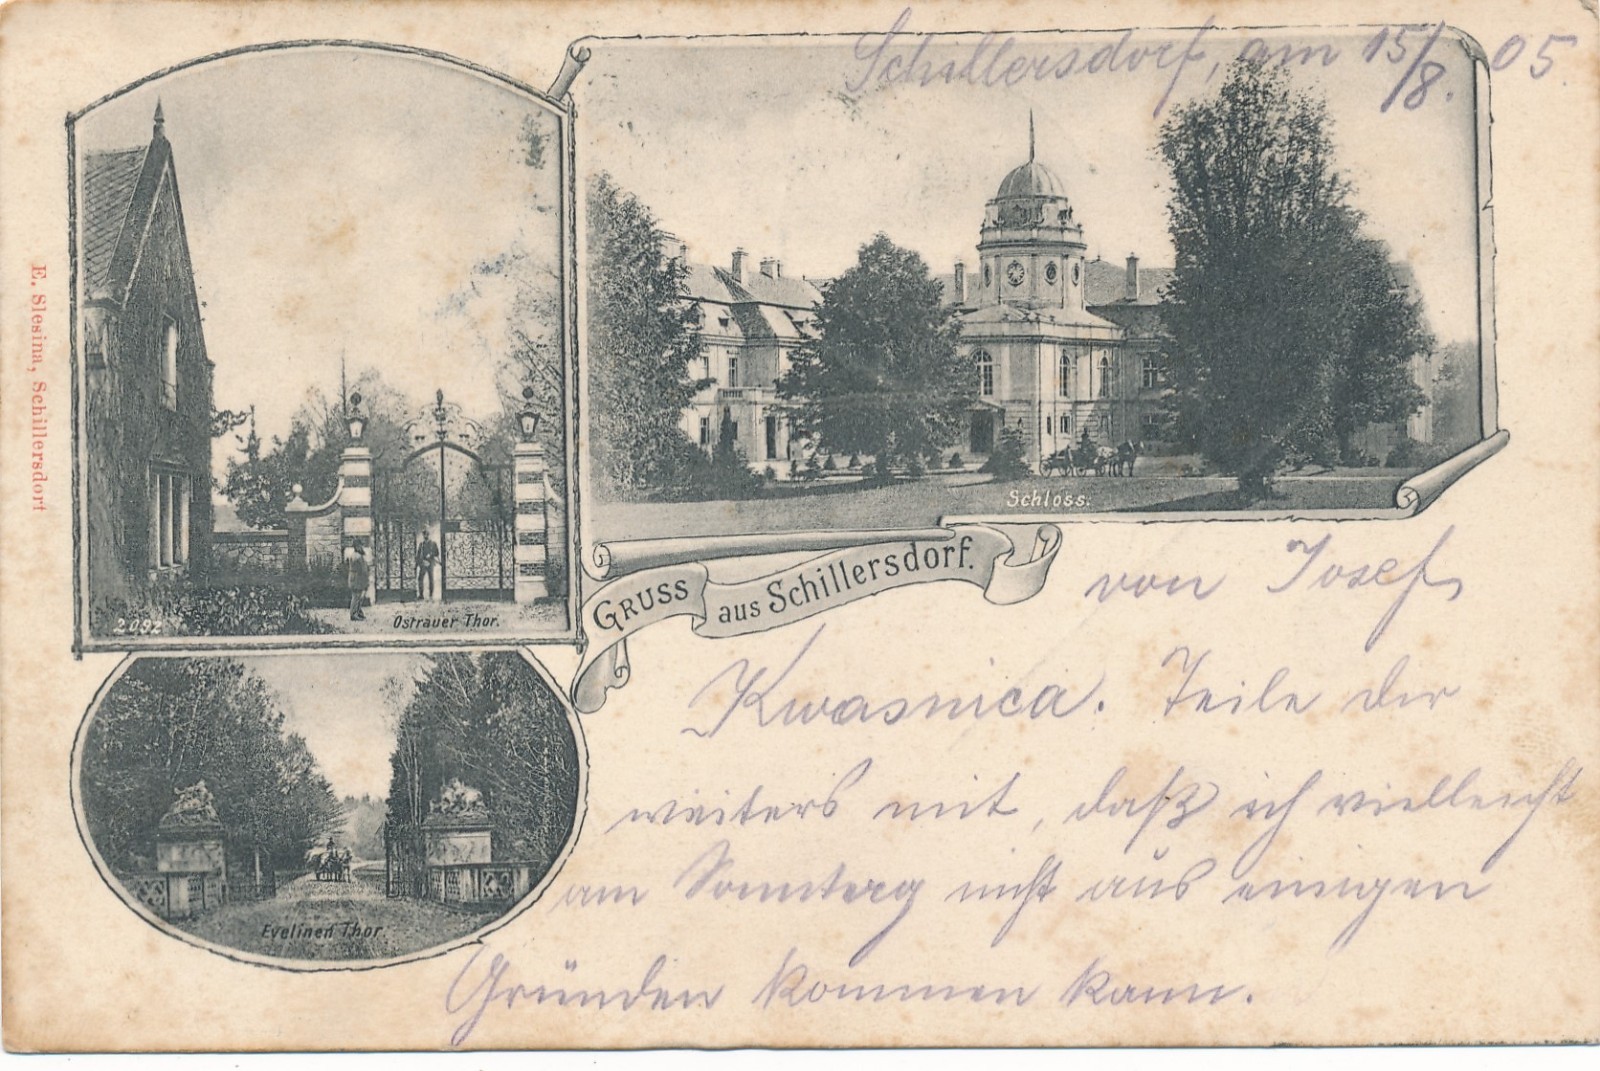 Schillersdorf, am 15/8. 05.
E. Slesina, Schillersdorf
2092
Ostrauer Thor.
Schloss.
GRUSS aus Schillersdorf.
Evelinen Thor.
von Josef
Kwasnica. Teile dir
weiters mit, daß ich vielleicht
am Sonntag nicht aus einigen
Gründen kommen kann.